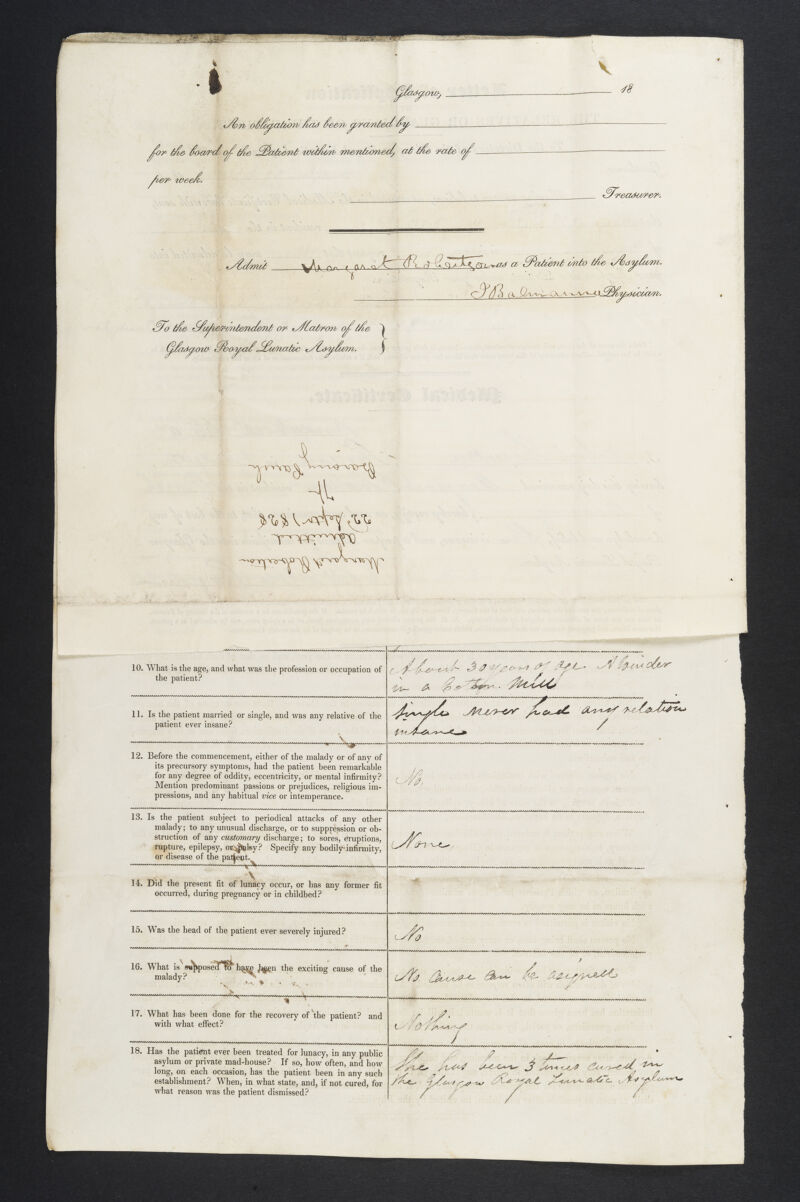 Glasgow, 18
An obligation has been granted by
for the board of the Patient within mentioned, at the rate of
per week.
Treasurer.
Admit Margaret Robertson as a Patient into the Asylum.
J Balmanno Physician.
To the Superintendent or Matron of the
Glasgow Royal Lunatic Asylum.
Margaret Robertson
admitted
22 Septr 1828
Barony Parish
10. What is the age, and what was the profession or occupation of
the patient?
About 30 years of age A Winder
in a Cotton Mill
11. Is the patient married or single, and was any relative of the
patient ever insane?
Single Never had any relation
insane
12. Before the commencement, either of the malady or of any of
its precursory symptoms, had the patient been remarkable
for any degree of oddity, eccentricity, or mental infirmity?
Mention predominant passions or prejudices, religious im-
pressions, and any habitual vice or intemperance.
No
13. Is the patient subject to periodical attacks of any other
malady; to any unusual discharge, or to suppression or ob-
struction of any customary discharge; to sores, eruptions,
rupture, epilepsy, or palsy? Specify any bodily infirmity,
or disease of the patient.
None
14. Did the present fit of lunacy occur, or has any former fit
occurred, during pregnancy or in childbed?
15. Was the head of the patient ever severely injured?
No
16. What is supposed to have been the exciting cause of the
malady?
No cause can be asigned
17. What has been done for the recovery of the patient? and
with what effect?
Nothing
18. Has the patient ever been treated for lunacy, in any public
asylum or private mad-house? If so, how often, and how
long, on each occasion, has the patient been in any such
establishment? When, in what state, and, if not cured, for
what reason was the patient dismissed?
She has been 3 times cured in
the Glasgow Royal Lunatic Asylum